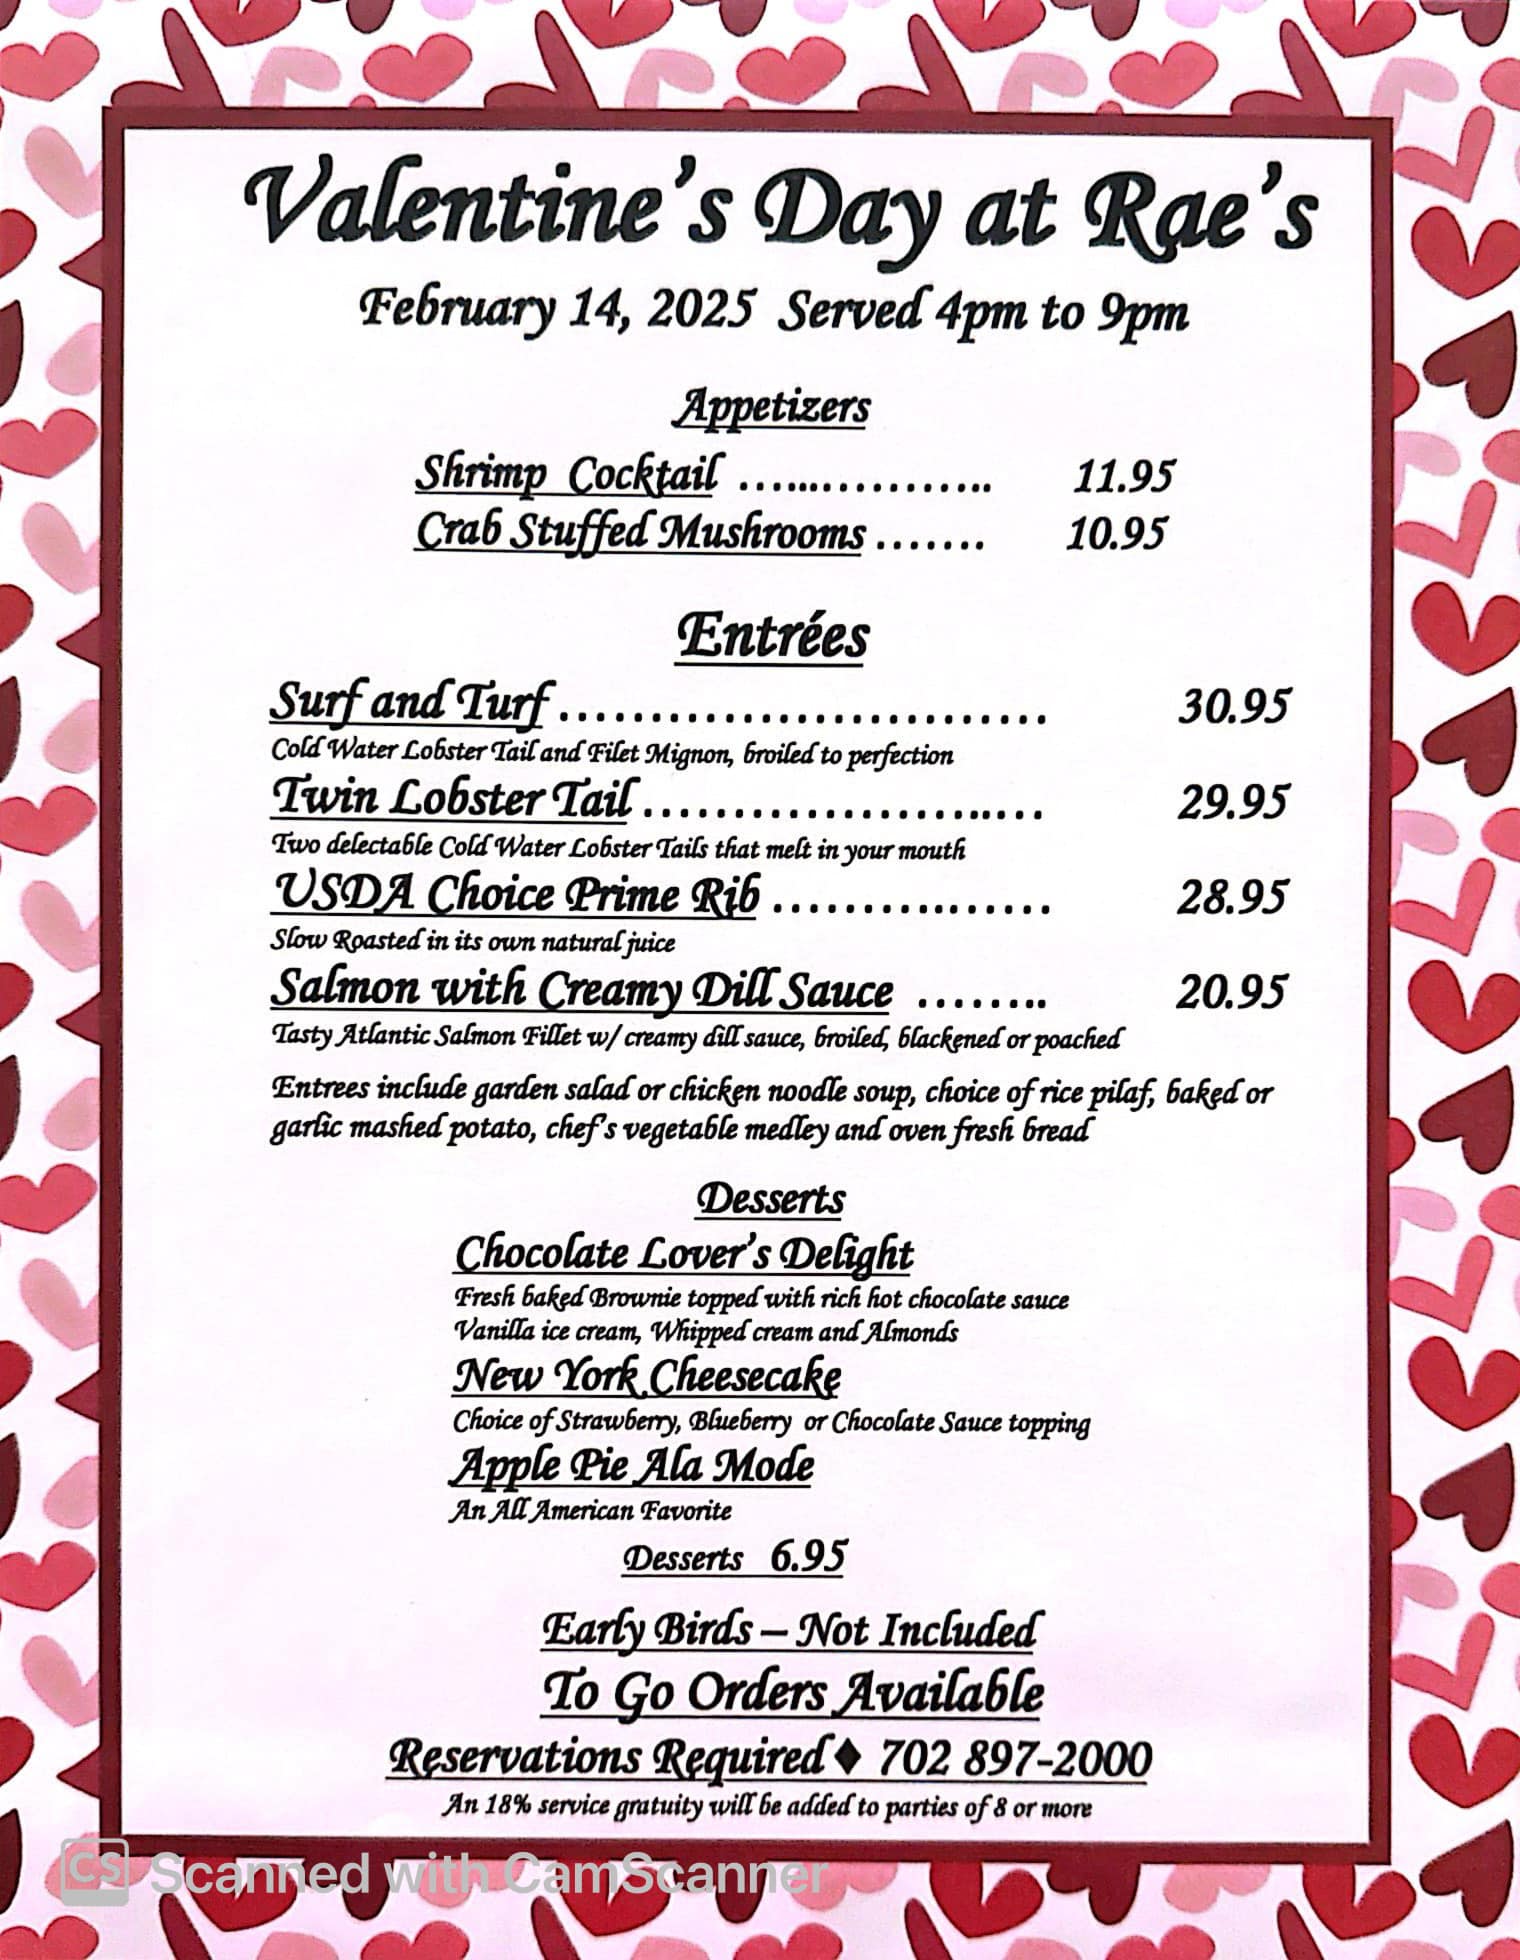 Valentine's Day at Rae's
February 14, 2025 Served 4pm to 9pm
Appetizers
Shrimp Cocktail …...……….. 11.95
Crab Stuffed Mushrooms ……. 10.95
Entrées
Surf and Turf ……………………… 30.95
Cold Water Lobster Tail and Filet Mignon, broiled to perfection
Twin Lobster Tail ………………..… 29.95
Two delectable Cold Water Lobster Tails that melt in your mouth
USDA Choice Prime Rib ……….…… 28.95
Slow Roasted in its own natural juice
Salmon with Creamy Dill Sauce …….. 20.95
Tasty Atlantic Salmon Fillet w/ creamy dill sauce, broiled, blackened or poached
Entrees include garden salad or chicken noodle soup, choice of rice pilaf, baked or
garlic mashed potato, chef's vegetable medley and oven fresh bread
Desserts
Chocolate Lover's Delight
Fresh baked Brownie topped with rich hot chocolate sauce
Vanilla ice cream, Whipped cream and Almonds
New York Cheesecake
Choice of Strawberry, Blueberry or Chocolate Sauce topping
Apple Pie Ala Mode
An All American Favorite
Desserts 6.95
Early Birds – Not Included
To Go Orders Available
Reservations Required♦ 702 897-2000
An 18% service gratuity will be added to parties of 8 or more
CS Scanned with CamScanner